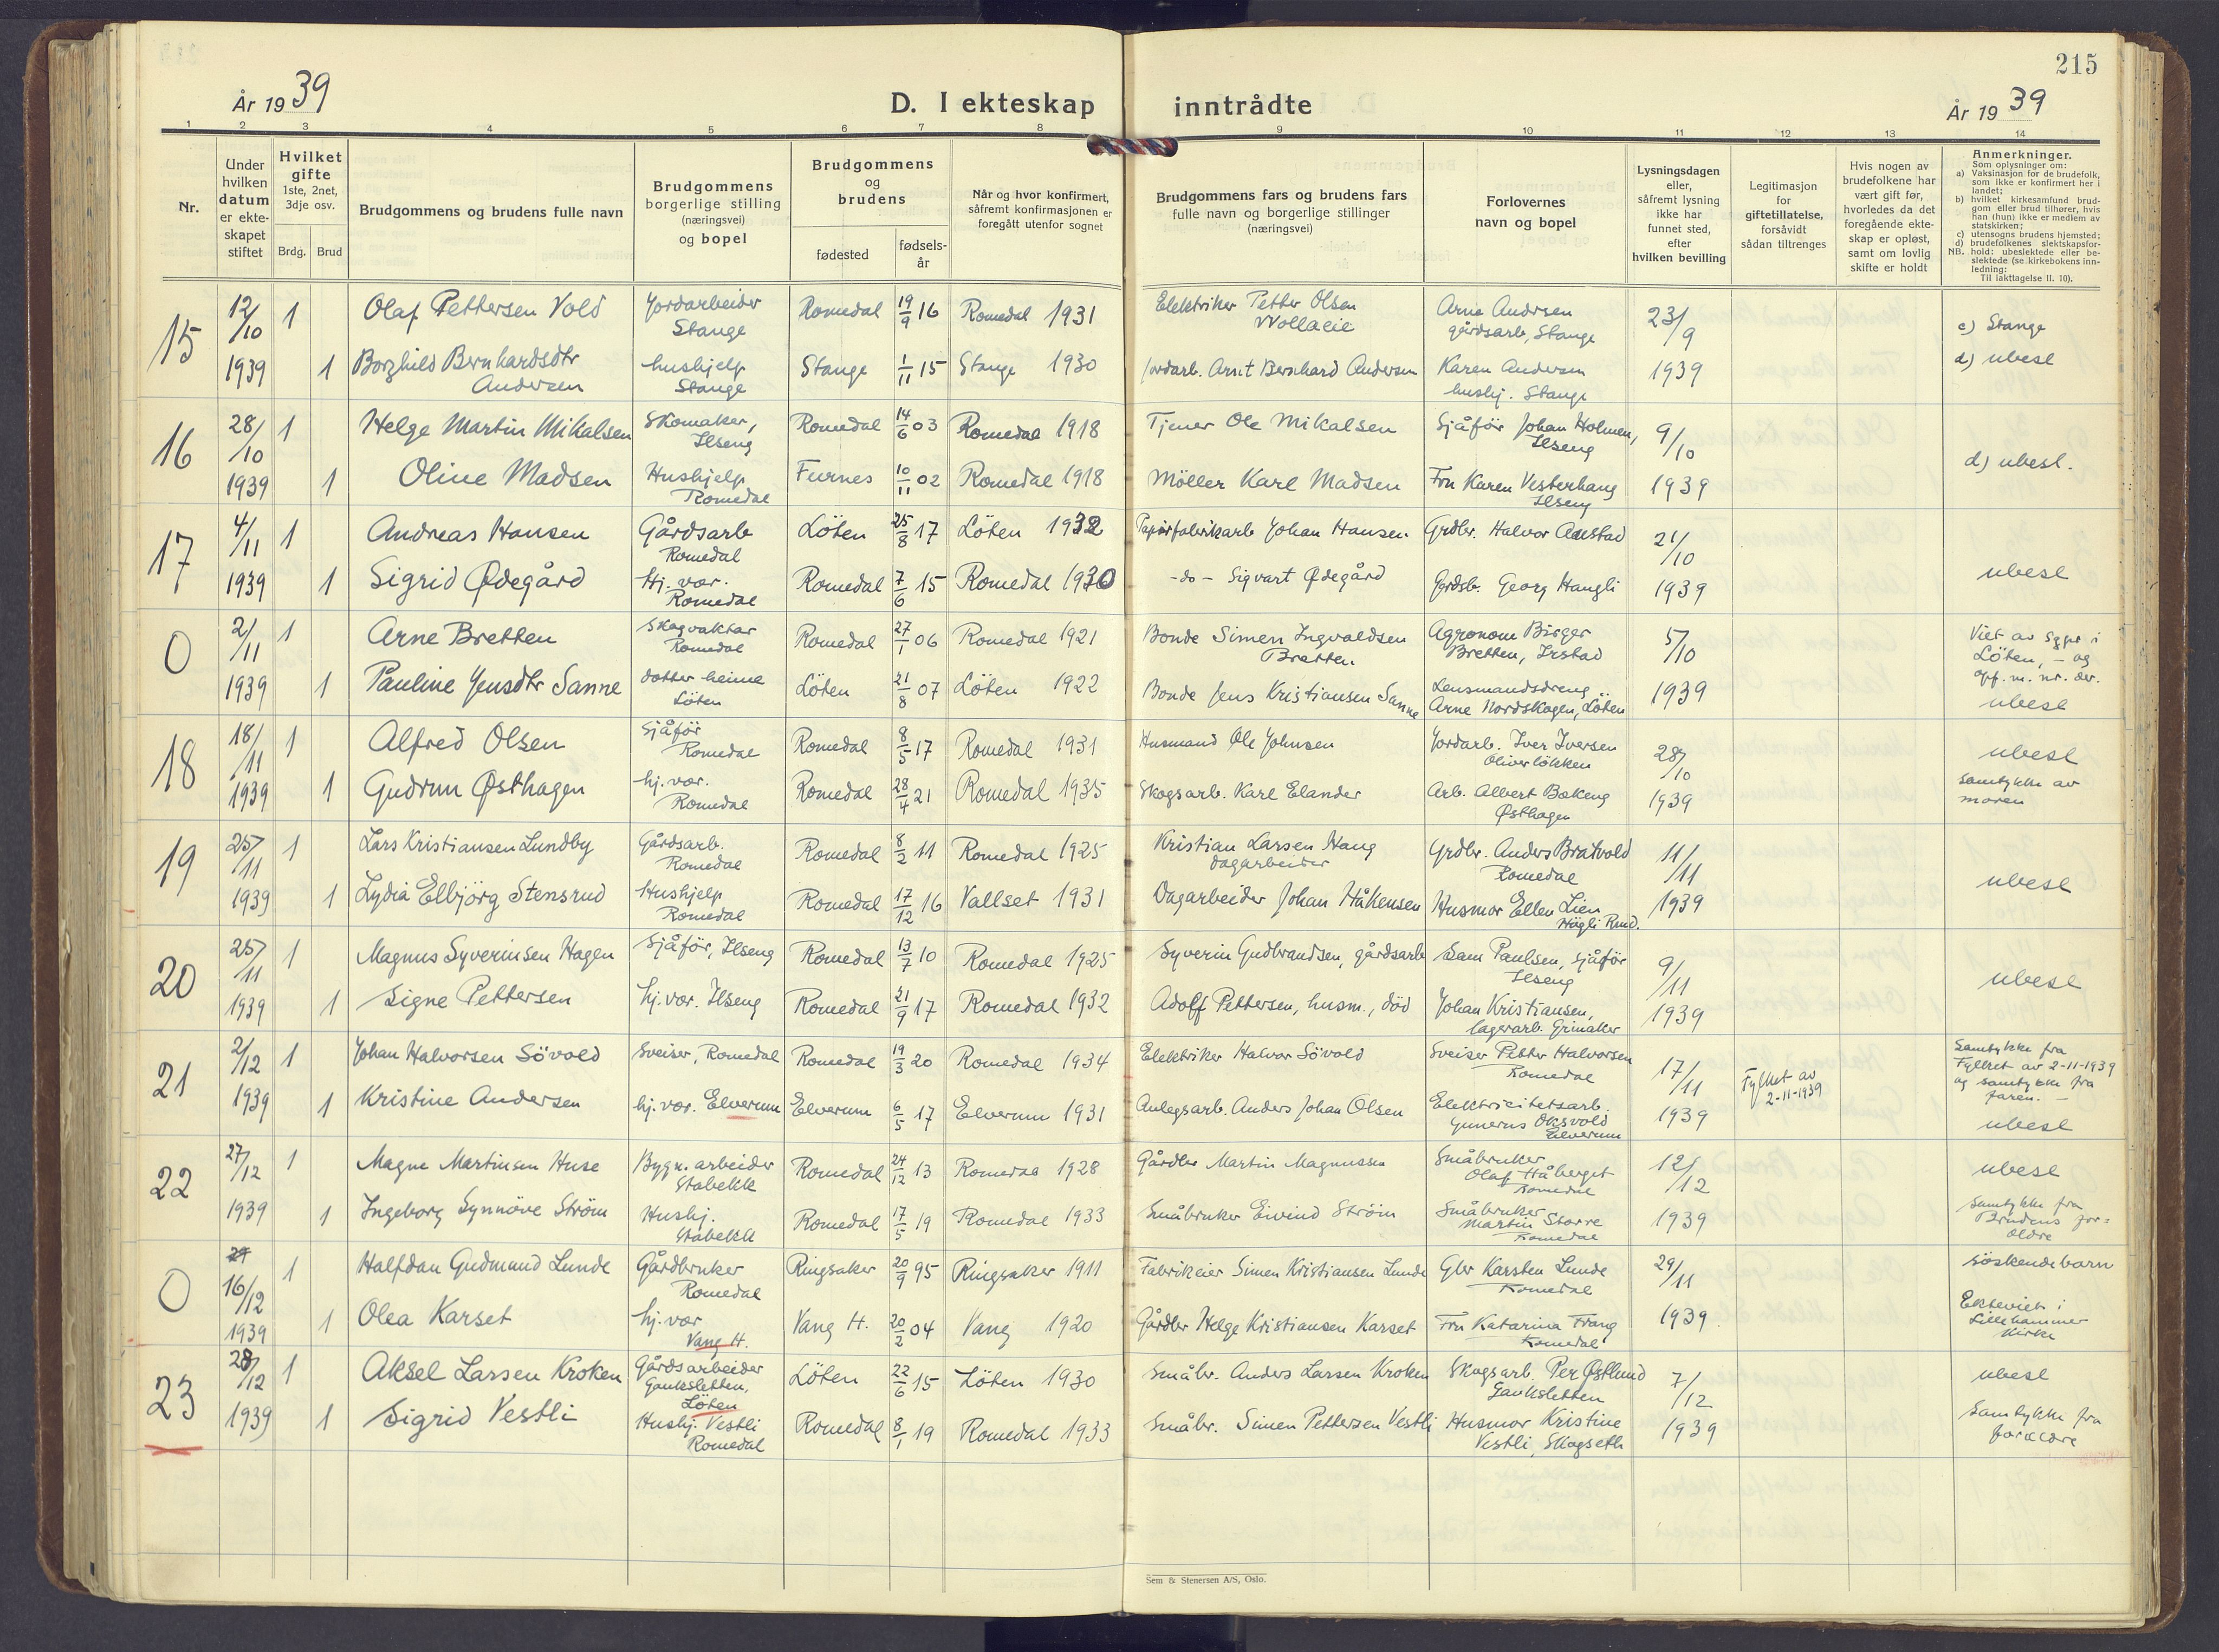 215
År 19 39
D. I ekteskap inntrådte
År 19 39
1 2 3 4 5 6 7 8 9 10 11 12 13 14
Nr.
Under hvilken datum er ekteskapet stiftet
Hvilket gifte 1ste, 2net, 3dje osv.
Brdg. Brud
Brudgommens og brudens fulle navn
Brudgommens borgerlige stilling (næringsvei) og bopel
Brudgommens og brudens
fødested
fødsels-år
Når og hvor konfirmert, såfremt konfirmasjonen er foregått utenfor sognet
Brudgommens fars og brudens fars fulle navn og borgerlige stillinger (næringsvei)
Forlovernes navn og bopel
Lysningsdagen eller, såfremt lysning ikke har funnet sted, efter hvilken bevilling
Legitimasjon for giftetillatelse, forsåvidt sådan tiltrenges
Hvis nogen av brudefolkene har vært gift før, hvorledes da det foregående ekteskap er opløst, samt om lovlig skifte er holdt
Anmerkninger.
Som oplysninger om:
a) Vaksinasjon for de brudefolk, som ikke er konfirmert her i landet;
b) hvilket kirkesamfund brudgom eller brud tilhører, hvis han (hun) ikke er medlem av statskirken;
c) utensogns brudens hjemsted;
d) brudefolkenes slektskapsforhold: ubeslektede eller beslektede (se kirkebokens innledning:
NB. Til iakttagelse II. 10).
15 12/10 1 Olaf Pettersen Vold Jordarbeider Stange Romedal 19/9 16 Romedal 1931 Elektriker Petter Olsen Arne Andersen gårdsarb, Stange 23/9 c) Stange
1939 1 Borghild Bernhardsdtr Andersen hushjelp Stange Stange 1/11 15 Stange 1930 Jordarb. Arnt Bernhard Andersen Karen Andersen hushj. Stange 1939 d) ubesl
16 28/10 1 Helge Martin Mikalsen Skomaker, Ilseng Romedal 14/6 03 Romedal 1918 Tjener Ole Mikalsen Sjåför Johan Holmen, Ilseng 9/10
1939 1 Oline Madsen Hushjelp Romedal Furnes 10/11 02 Romedal 1918 Möller Karl Madsen Fru Karen Vesterhaug Ilseng 1939 d) ubesl.
17 4/11 1 Andreas Hansen Gårdsarb Romedal Löten 25/8 17 Löten 1932 Papirfabrikarb Johan Hansen Grdbr. Halvor 21/10
1939 1 Sigrid Ødegård Hj. vær. Romedal Romedal 7/6 15 Romedal 1930 -do- Sigvart Ødegård Gårdsb. Georg Haugli 1939 ubesl
0 2/11 1 Arne Bretten Skogvaktar Romedal Romedal 27/1 06 Romedal 1921 Bonde Simen Ingvaldsen Bretten Agronom Birger Bretten, Ilstad 5/10 Viet av sgpr i Löten, - og opf. m. nr. der.
1939 1 Pauline Jensdtr Sanne dotter heime Löten Löten 21/8 07 Löten 1922 Bonde Jens Kristiansen Sanne Lensmandsdreng Arne Nordskogen, Löten 1939 ubesl
18 18/11 1 Alfred Olsen Sjåför Romedal Romedal 8/5 17 Romedal 1931 Husmand Ole Johnsen Jordarb. Iver Iversen Oliverlökken 28/10 ubesl
1939 1 Gudrun Østhagen hj. vær. Romedal Romedal 28/4 21 Romedal 1935 Skogsarb. Karl Elander Arb. Albert Bakeng Østhagen 1939 Samtykke av moren
19 25/11 1 Lars Kristiansen Lundby Gårdsarb. Romedal Romedal 8/2 11 Romedal 1925 Kristian Larsen Haug dagarbeider Grdbr. Anders Bratvold Romedal 11/11
1939 1 Lydia Elbjörg Stensrud Hushjelp Romedal Romedal 17/12 16 Vallset 1931 Dagarbeider Johan Håkensen Husmor Ellen Lien 1939 ubesl
20 25/11 1 Magnus Syverinsen Hagen Sjåför, Ilseng Romedal 13/7 10 Romedal 1925 Syverin Gudbrandsen, gårdsarb Sam Paulsen, sjåför Ilseng 9/11
1939 1 Signe Pettersen hj. vær. Ilseng Romedal 21/9 17 Romedal 1932 Adolf Pettersen, husm., död Johan Kristiansen, lagerarb. Grinaker 1939 ubesl
21 2/12 1 Johan Halvorsen Sövold Sveiser, Romedal Romedal 19/3 20 Romedal 1934 Elektriker Halvor Sövold Sveiser Petter Halvorsen Romedal 17/11 Fylket av 2-11-1939 Samtykke fra Fylket av 2-11-1939 og samtykke fra faren. -
1939 1 Kristine Andersen hj. vær. Elverum Elverum 6/5 17 Elverum 1931 Anlegsarb. Anders Johan Olsen Elektricitetsarb. Gunerus Oksvold Elverum 1939 ubesl
22 27/12 1 Magne Martinsen Huse Bygn. arbeider Stabekk Romedal 24/12 13 Romedal 1928 Gårdbr Martin Magnussen Småbruker Olaf Håberget Romedal 12/12 ubesl
1939 1 Ingeborg Synnöve Ström Hushj. Stabekk Romedal 17/5 19 Romedal 1933 Småbruker Eivind Ström Småbruker Martin Storre Romedal 1939 Samtykke fra Brudens foreldre
0 16/12 1 Halfdan Gudmund Lunde Gårdbruker Romedal Ringsaker 20/9 95 Ringsaker 1911 Fabrikeier Simen Kristiansen Lunde Gbr Karsten Lunde Romedal 29/11 söskendebarn
1939 1 Olea Karset hj. vær Vang H. Vang H. 20/2 04 Vang 1920 Gårdbr Helge Kristiansen Karset Fru Katarina Frang Romedal 1939 Ekteviet i Lillehammer kirke
23 28/12 1 Aksel Larsen Kroken Gårdsarbeider Gaukstetten, Löten Löten 22/6 15 Löten 1930 Småbr. Anders Larsen Kroken Skogsarb. Per Østlund 7/12 ubesl
1939 1 Sigrid Vestli Hushj. Vestli Romedal Romedal 8/1 19 Romedal 1933 Småbr. Simen Pettersen Vestli Husmor Kristine Vestli, Skogseth 1939 Samtykke fra
Sem & Stenersen A/S, Oslo.